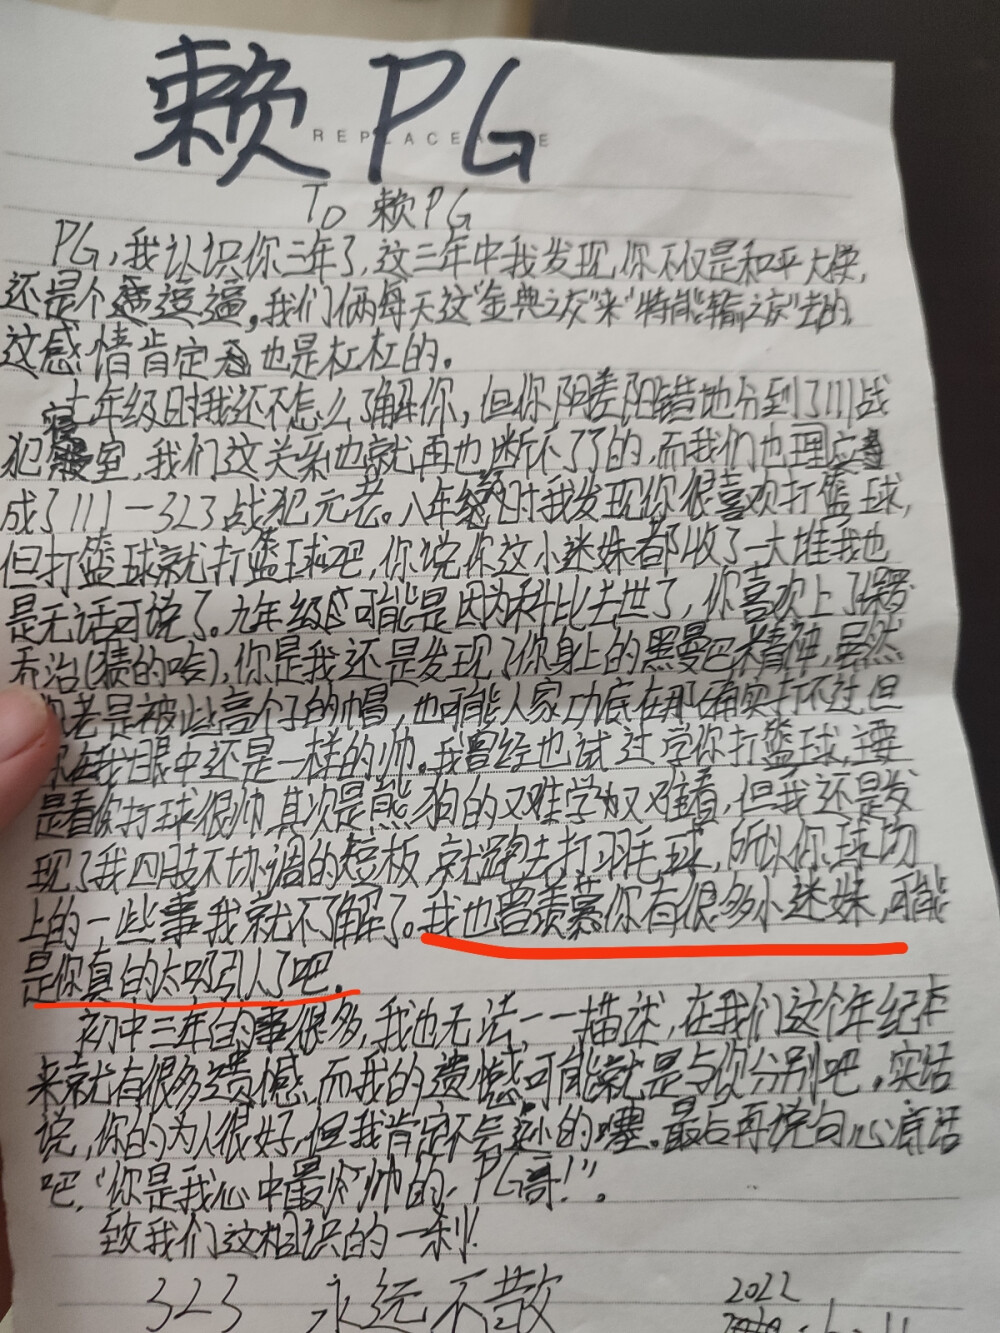 赖PG
REPLACEA E
To 赖PG
PG,我认识你三年了,这三年中我发现,你不仅是和平大使,
还是个逗逼,我们俩每天这"金典之友"来"特能输之友"去的,
这感情肯定也是杠杠的。
七年级时我还不怎么了解你,但你阴差阳错地分到了111战
犯寝室,我们这关系也就再也断不了了的,而我们也理应
成了111-323战犯元老。八年级时我发现你很喜欢打篮球,
但打篮球就打篮球吧,你说你这小迷妹都收了一大堆我也
是无话可说了。九年级可能是因为科比去世了,你喜欢上了保罗
乔治(猜的哈),你是我还是发现了你身上的黑曼巴精神,虽然
你老是被些高个子的帽,也可能人家功底在那确实打不过,但
你在我眼中还是一样的帅。我曾经也试过学你打篮球,主要
是看你打球很帅,其次是熊狗的又难学又难看,但我还是发
现了我四肢不协调的短板,就跑去打羽毛球,所以你球场
上的一些事我就不了解了。我也曾羡慕你有很多小迷妹,可能
是你真的太吸引人了吧。
初中三年的事很多,我也无法一一描述,在我们这个年纪本
来就有很多遗憾,而我的遗憾可能就是与你分别吧。实话
说,你的为人很好,但我肯定不会的噻。最后再说句心底话
吧,"你是我心中最帅的,PG哥!"。
致我们这相识的一刹!
323 永远不散
2022